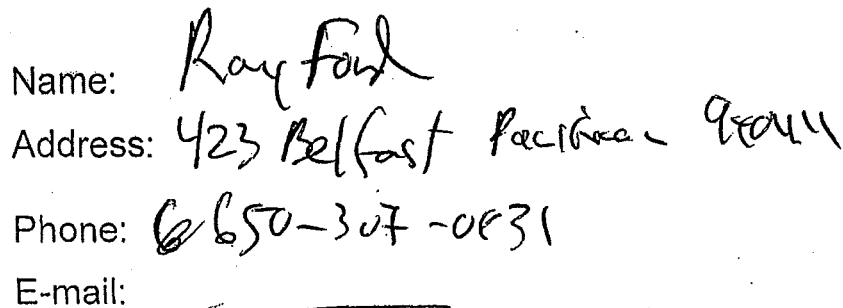 Name: Ray Ford
Address: 423 Belfast Pacifica 94044
Phone: 650-307-0831
E-mail: